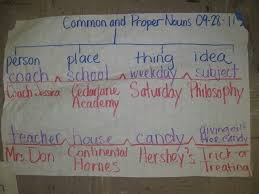 Common and Proper Nouns 09-28-11
person place thing idea
coach school weekday subject
Coach Jessica Cedarlane Academy Saturday Philosophy
teacher house candy giving out free candy
Mrs. Dan Continental Homes Hershey's Trick or Treating